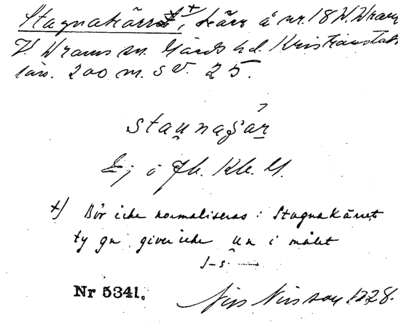 Stagnakärr++, kärr å nr. 18 N. Wram
V Wrams sn. Gärds hd. Kristianstads
län. 200 m. SV. 25.
staunagär
Ej i Jb. Kb. G.
+) Bör icke normaliseras: Stagnakärret
ty gn giver icke un i målet
J-s
Nr 5341.
Nils Nilsson 1928.